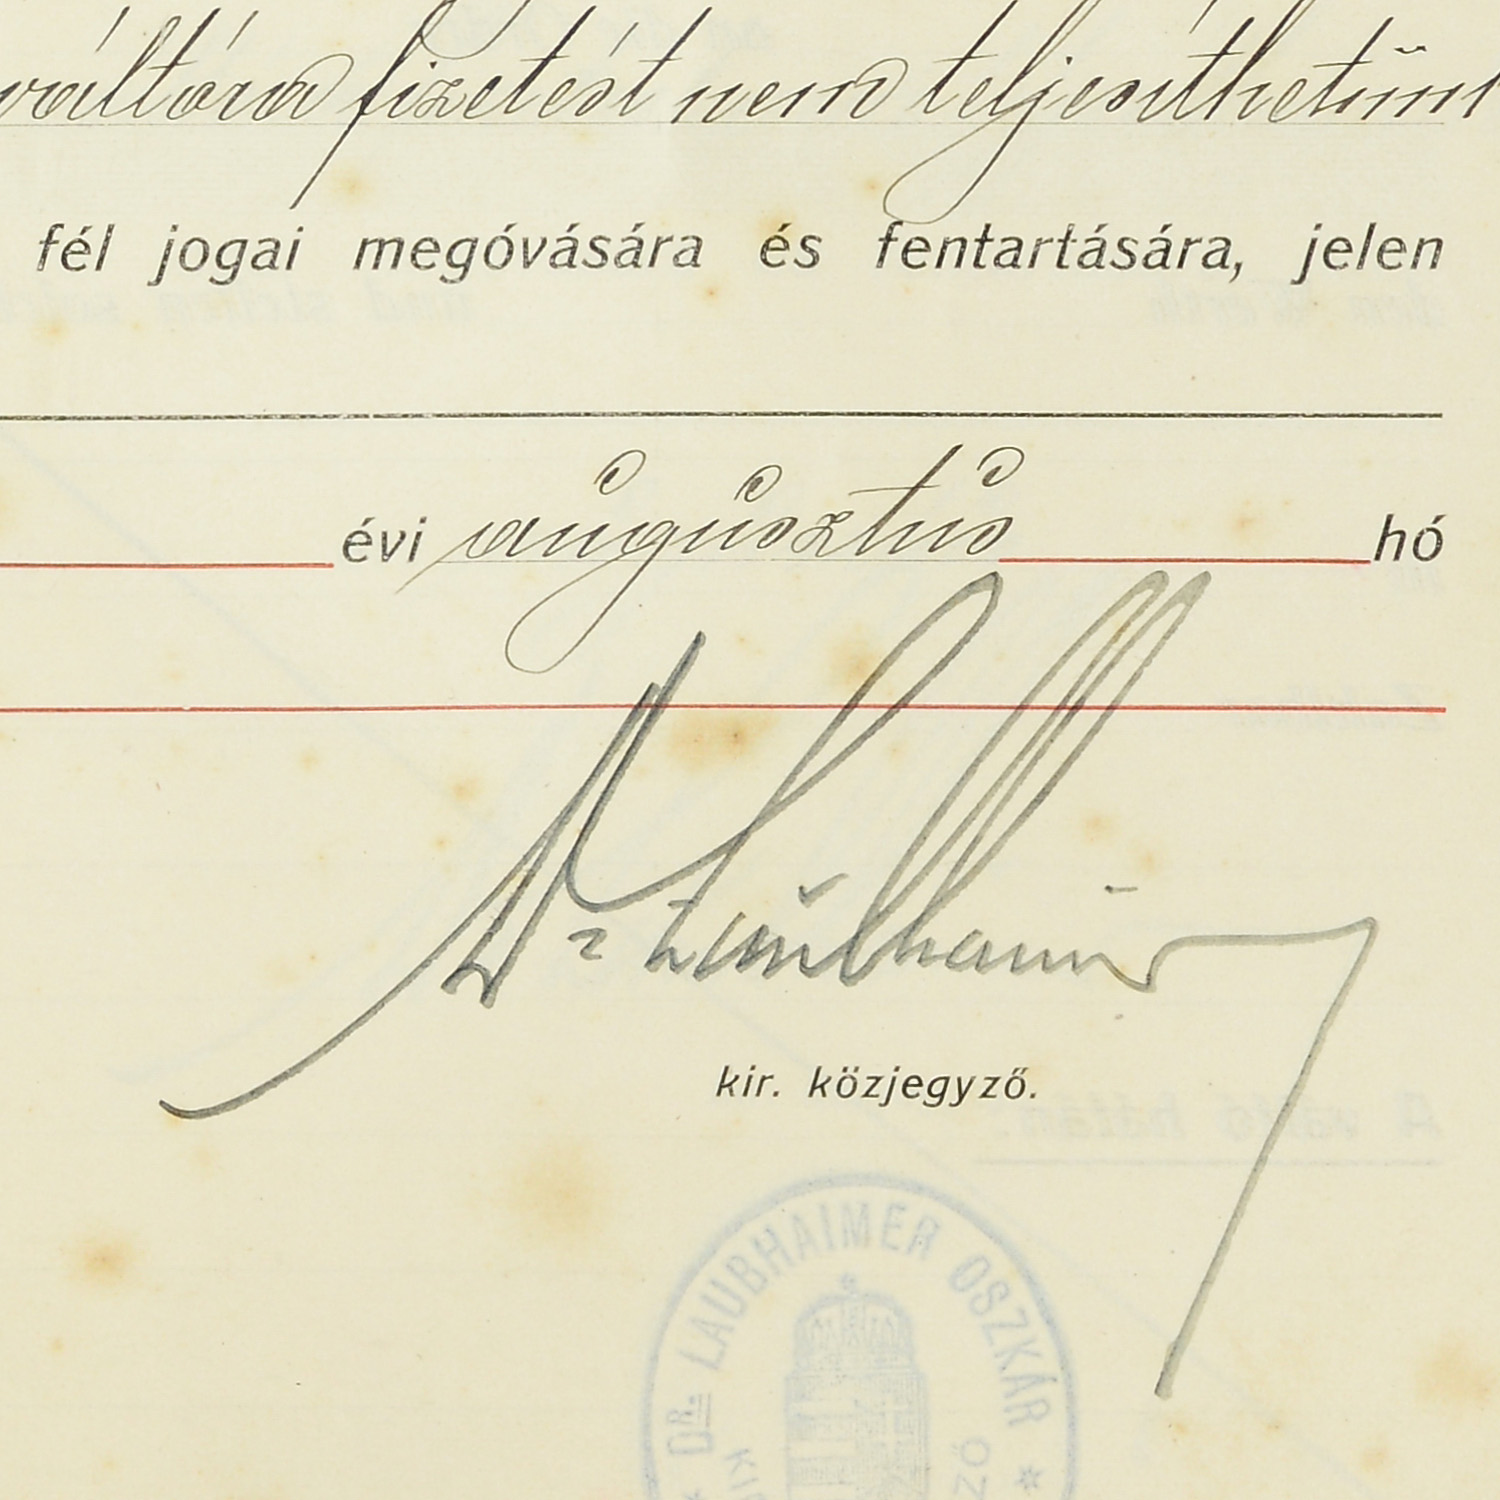 váltóra fizetést nem teljesíthetünk
fél jogai megóvására és fentartására, jelen
évi augusztus hó
Dr Laubhaimer
kir. közjegyző.
DR. LAUBHAIMER OSZKÁR